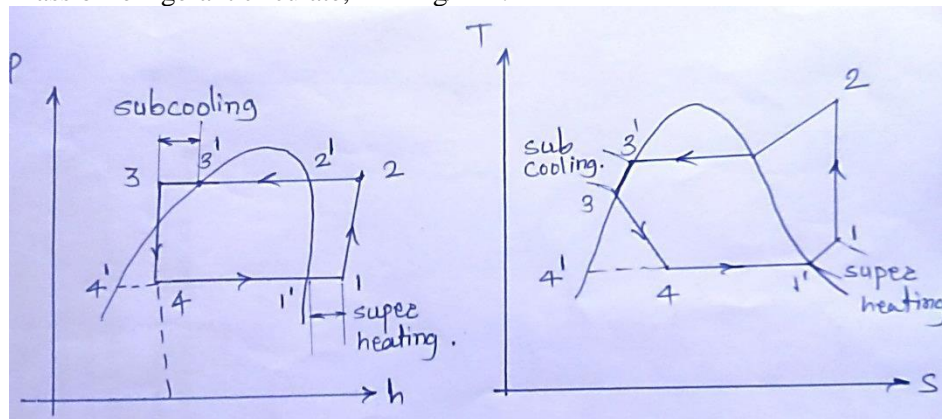 P
subcooling
3
3'
2'
2
4'
4
1'
1
super
heating .
h
T
2
sub
cooling.
3'
3
4'
4
1'
1
super
heating
S